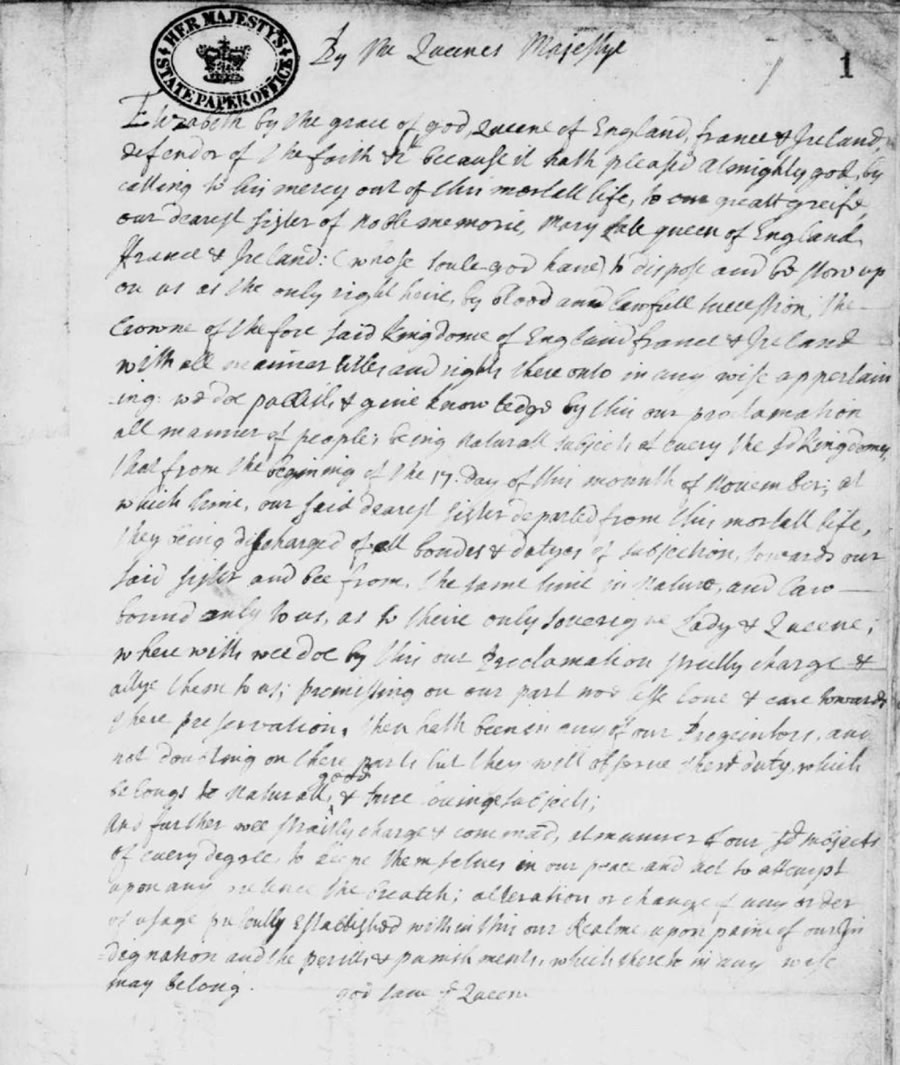 HER MAJESTY'S STATE PAPER OFFICE
By the Queenes Majestye
1
Elizabeth by the grace of god, Queene of England, france & Ireland,
defendor of the faith &c because it hath pleased Almighty god, by
calling to his mercy out of this mortall life, to our greatt greife,
our dearest sister of noble memorie, Mary late queen of England
France & Ireland: (whose soule god have) to dispose and bestow up
on us as the only right heire, by blood and lawfull succession, the
Crowne of the fore said kingdome of England france & Ireland
with all manner titles and rights there unto in any wise appertain
-ing: we doe publish & give knowledge by this our proclamation
all manner of people, being naturall subjects of every the sd kingdomes,
that from the beginning of the 17. day of this mounth of November; at
which time, our said dearest sister departed from this mortall life,
they being discharged of all bondes & dutyes of subjection, towards our
said sister and bee from, the same time in nature, and law
bound only to us, as to theire only sovereigne Lady & Queene;
where with wee doe by this our Proclamation streetly charge &
allye them to us; promissing on our part no lesse love & care towards
there preservation, then hath been in any of our Progenitors, and
not doubting on there parts but they will observe there duty, which
belongs to naturall, good & true loving subjects;
And further wee straitly charge & command, al manner of our sd subjects
of every degree, to keepe themselves in our peace and not to attempt
upon any pretence the breatch; alteration or change of any order
or usage presently established within this our Realme, upon paine of our In
dignation and the perills & punishments, which thereto in any wise
may belong.
god save ye Queene